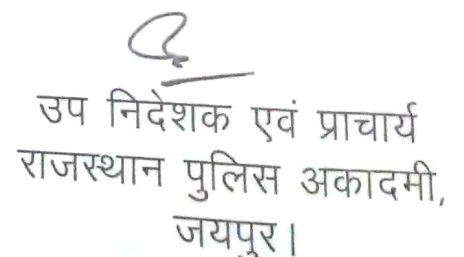 उप निदेशक एवं प्राचार्य
राजस्थान पुलिस अकादमी,
जयपुर।